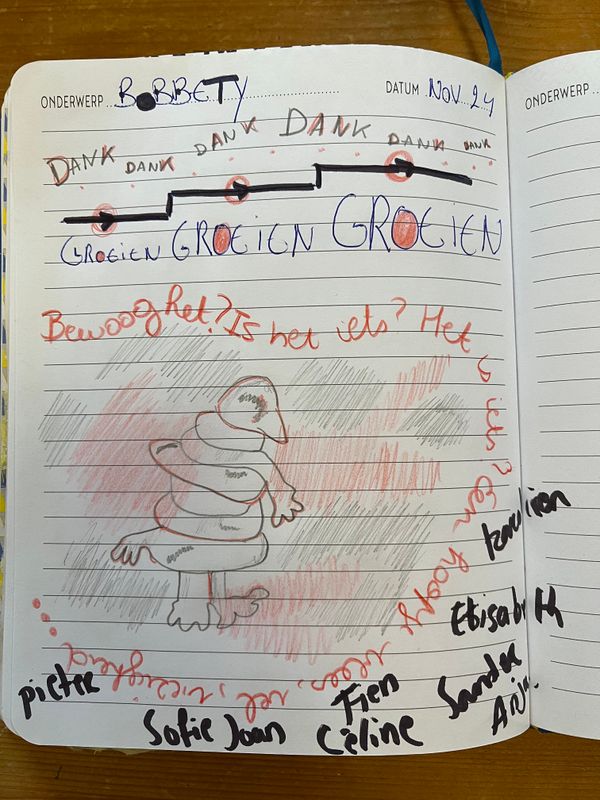 ONDERWERP BOBBETY DATUM NOV. 24
ONDERWERP
DANK DANK DANK DANK DANK DANK
GROEIEN GROEIEN GROEIEN
Bewoog het? Is het iets? Het
is iets? Een hoopje
vlees, vel, viezigheid...
Karolien
Elisabeth
Sander
Anja
pieter
Sofie Joan
Fien
Céline